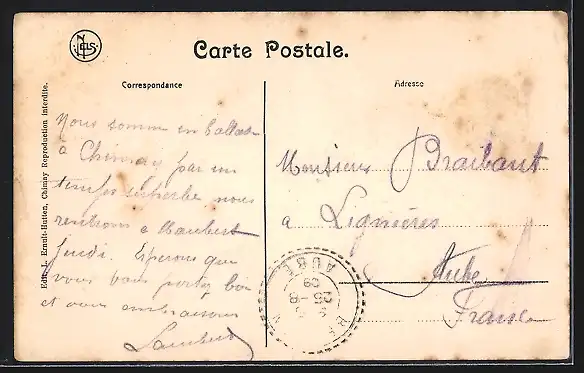 NELS
Carte Postale.
Correspondance
Adresse
Edit. V. Ernult-Hutten, Chimay Reproduction interdite.
Nous somme en ballade
à Chimay par un
temps superbe nous
rentrons à Maubert
Jeudi. Esperons que
vous vous portez bien
et vous embrassons
Monsieur Braibant
à Lignières
Aube
France
AUBE